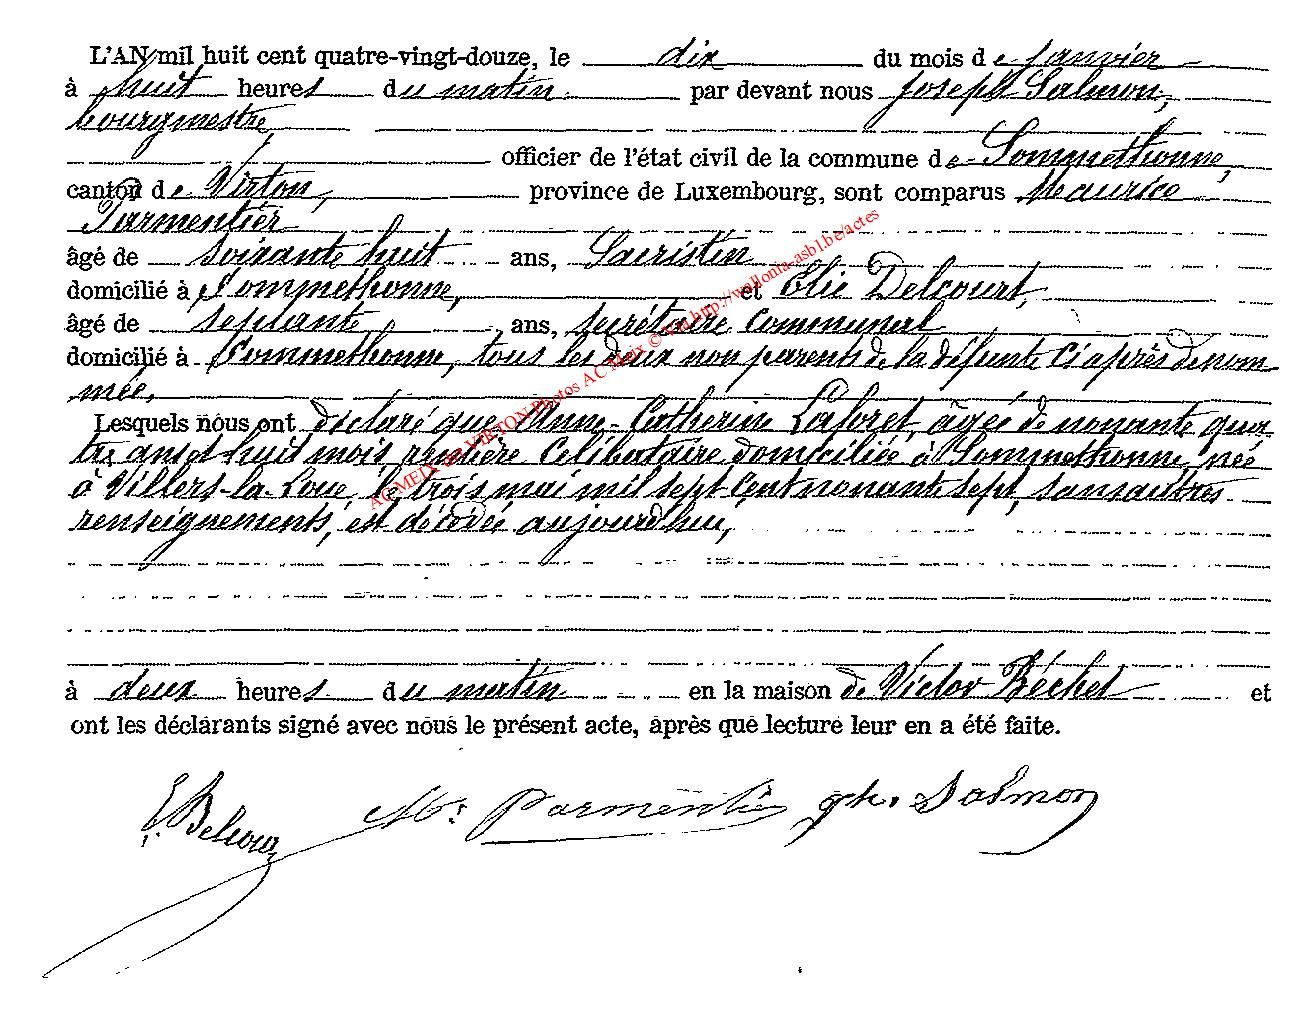 L'AN mil huit cent quatre-vingt-douze, le dix du mois de janvier
à huit heures du matin par devant nous Joseph Salmon,
bourgmestre,
officier de l'état civil de la commune de Sommethonne,
canton de Virton, province de Luxembourg, sont comparus Maurice
Parmentier
âgé de soixante huit ans, Sacristin
domicilié à Sommethonne, et Elie Delcourt,
âgé de septante ans, secrétaire communal
domicilié à Sommethonne, tous les deux non parents de la défunte ci après dénom
mée,
Lesquels nous ont déclaré que Anne-Catherine Laforet, âgée de nonante qua-
tre ans et huit mois, rentière, Célibataire, domiciliée à Sommethonne, née
à Villers-la-Loue, le trois mai mil sept cent nonante sept, sans autres
renseignements, est décédée aujourd'hui,
à deux heures du matin en la maison de Victor Béchet et
ont les déclarants signé avec nous le présent acte, après que lecture leur en a été faite.
E. Delcour M. Parmentier Jph. Salmon
AC MEIX dvt VIRTON Photos AC Meix © via http://wallonia-asbl.be/actes